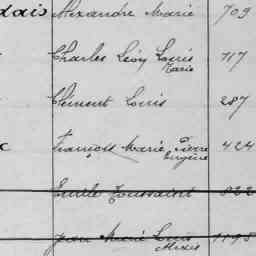 dais Alexandre Marie 709
Charles Léon Louis 717
Marie
Clément Louis 287
François Marie Pierre 424
Eugène
Emile Toussaint 822
Jean Marie Louis 1195
Alexis